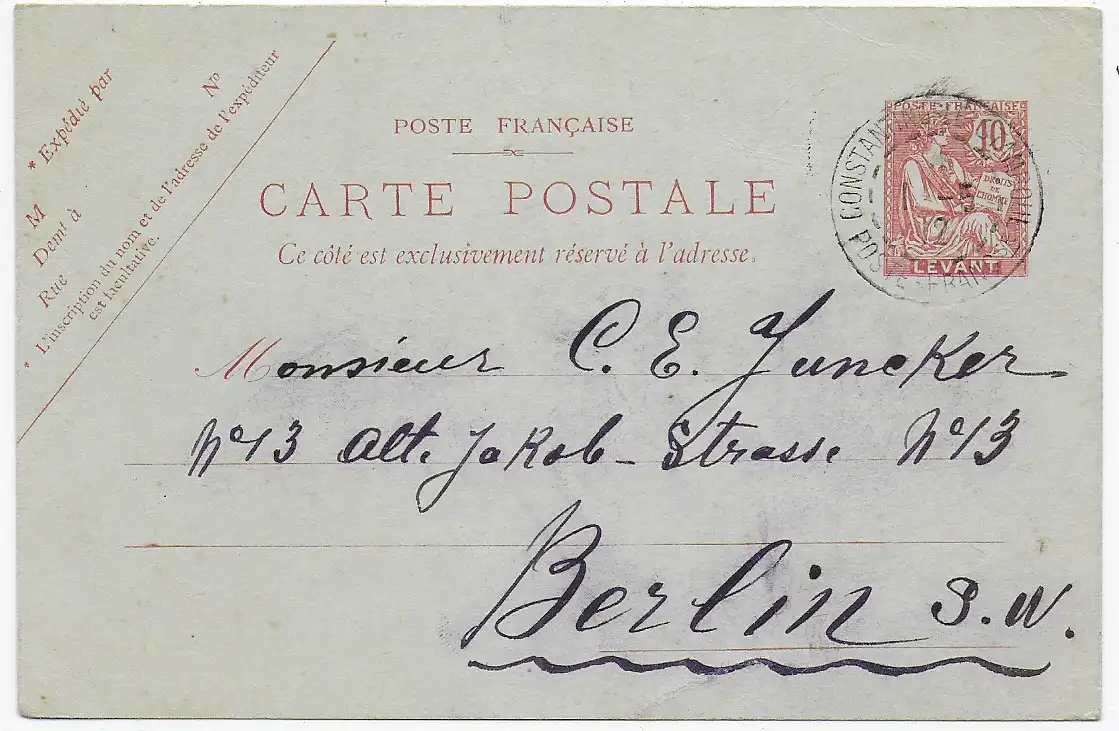 * Expédié par
M
Demt à
Rue
N°
* L'inscription du nom et de l'adresse de l'expéditeur
est facultative.
POSTE FRANÇAISE
CARTE POSTALE
Ce côté est exclusivement réservé à l'adresse.
POSTE FRANÇAISE
10
DROITS
DE
L'HOMME
LEVANT
CONSTANTINOPLE
POSTE FRANÇAISE
Monsieur C. E. Juncker
N° 13 Alt. Jakob - Strasse N° 13
Berlin S.W.